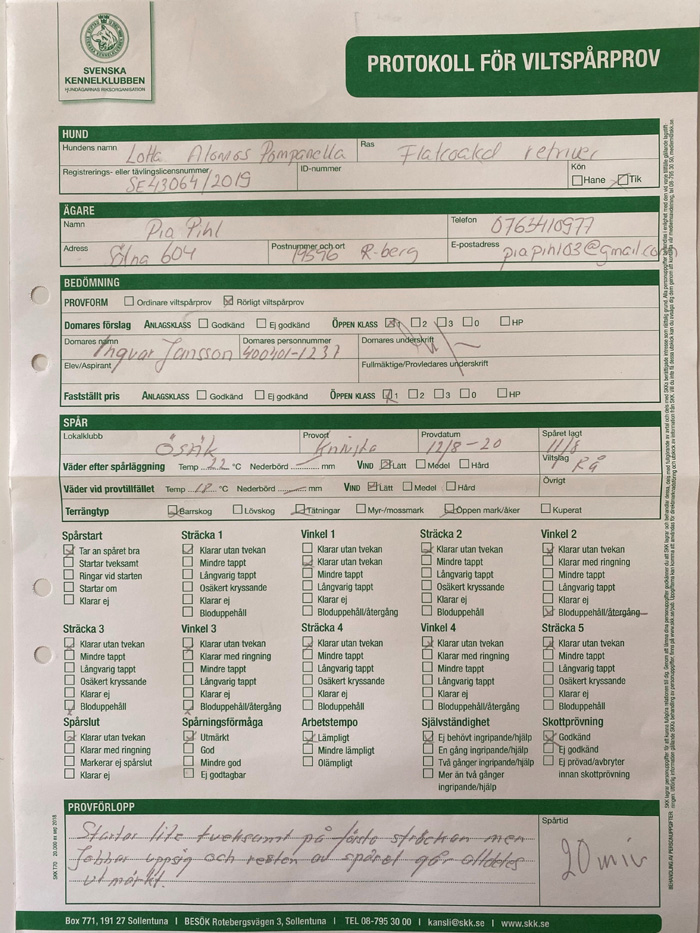 SVENSKA
KENNELKLUBBEN
HUNDÄGARNAS RIKSORGANISATION
PROTOKOLL FÖR VILTSPÅRPROV
HUND
Hundens namn Lotta Alonsos Pompanella Ras Flatcoated retriver
Registrerings- eller tävlingslicensnummer SE43064/2019 ID-nummer Kön Hane Tik
ÄGARE
Namn Pia Pihl Telefon 0763410977
Adress 604 Postnummer och ort R-berg E-postadress piapihl03@gmail.com
BEDÖMNING
PROVFORM Ordinare viltspårprov Rörligt viltspårprov
Domares förslag ANLAGSKLASS Godkänd Ej godkänd ÖPPEN KLASS 1 2 3 0 HP
Domares namn Ingvar Jansson Domares personnummer 400401-1237 Domares underskrift
Elev/Aspirant Fullmäktige/Provledares underskrift
Fastställt pris ANLAGSKLASS Godkänd Ej godkänd ÖPPEN KLASS 1 2 3 0 HP
SPÅR
Lokalklubb ÖSRIK Provort Knivsta Provdatum 12/8-20 Spåret lagt 11/8
Väder efter spårläggning Temp 22 °C Nederbörd mm VIND Lätt Medel Hård Viltslag Rå
Väder vid provtillfället Temp 18 °C Nederbörd mm VIND Lätt Medel Hård Övrigt
Terrängtyp Barrskog Lövskog Tätningar Myr-/mossmark Öppen mark/åker Kuperat
Spårstart Sträcka 1 Vinkel 1 Sträcka 2 Vinkel 2
Tar an spåret bra Klarar utan tvekan Klarar utan tvekan Klarar utan tvekan Klarar utan tvekan
Startar tveksamt Mindre tappt Klarar utan tvekan Mindre tappt Klarar med ringning
Ringar vid starten Långvarig tappt Mindre tappt Långvarig tappt Mindre tappt
Startar om Osäkert kryssande Långvarig tappt Osäkert kryssande Långvarig tappt
Klarar ej Klarar ej Klarar ej Klarar ej Klarar ej
Bloduppehåll Bloduppehåll/återgång Bloduppehåll Bloduppehåll/återgång
Sträcka 3 Vinkel 3 Sträcka 4 Vinkel 4 Sträcka 5
Klarar utan tvekan Klarar utan tvekan Klarar utan tvekan Klarar utan tvekan Klarar utan tvekan
Mindre tappt Klarar med ringning Mindre tappt Klarar med ringning Mindre tappt
Långvarig tappt Mindre tappt Långvarig tappt Mindre tappt Långvarig tappt
Osäkert kryssande Långvarig tappt Osäkert kryssande Långvarig tappt Osäkert kryssande
Klarar ej Klarar ej Klarar ej Klarar ej Klarar ej
Bloduppehåll Bloduppehåll/återgång Bloduppehåll Bloduppehåll/återgång Bloduppehåll
Spårslut Spårningsförmåga Arbetstempo Självständighet Skottprövning
Klarar utan tvekan Utmärkt Lämpligt Ej behövt ingripande/hjälp Godkänd
Klarar med ringning God Mindre lämpligt En gång ingripande/hjälp Ej godkänd
Markerar ej spårslut Mindre god Olämpligt Två gånger ingripande/hjälp Ej prövad/avbryter
Klarar ej Ej godtagbar Mer än två gånger innan skottprövning
ingripande/hjälp
PROVFÖRLOPP
Startar lite tveksamt på första sträckan men Spårtid
Jobbar uppsig och resten av spåret går alldeles 20 min
utmärkt.
Box 771, 191 27 Sollentuna I BESÖK Rotebergsvägen 3, Sollentuna I TEL 08-795 30 00 I kansli@skk.se I www.skk.se